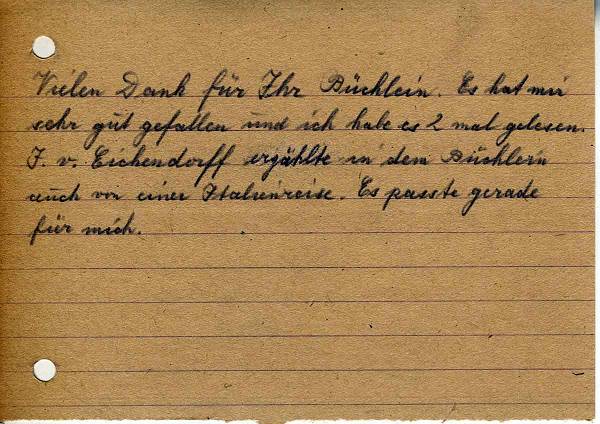 Vielen Dank für Ihr Büchlein. Es hat mir
sehr gut gefallen und ich habe es 2 mal gelesen.
J. v. Eichendorff erzählte in dem Büchlein
auch von einer Italienreise. Es passte gerade
für mich.